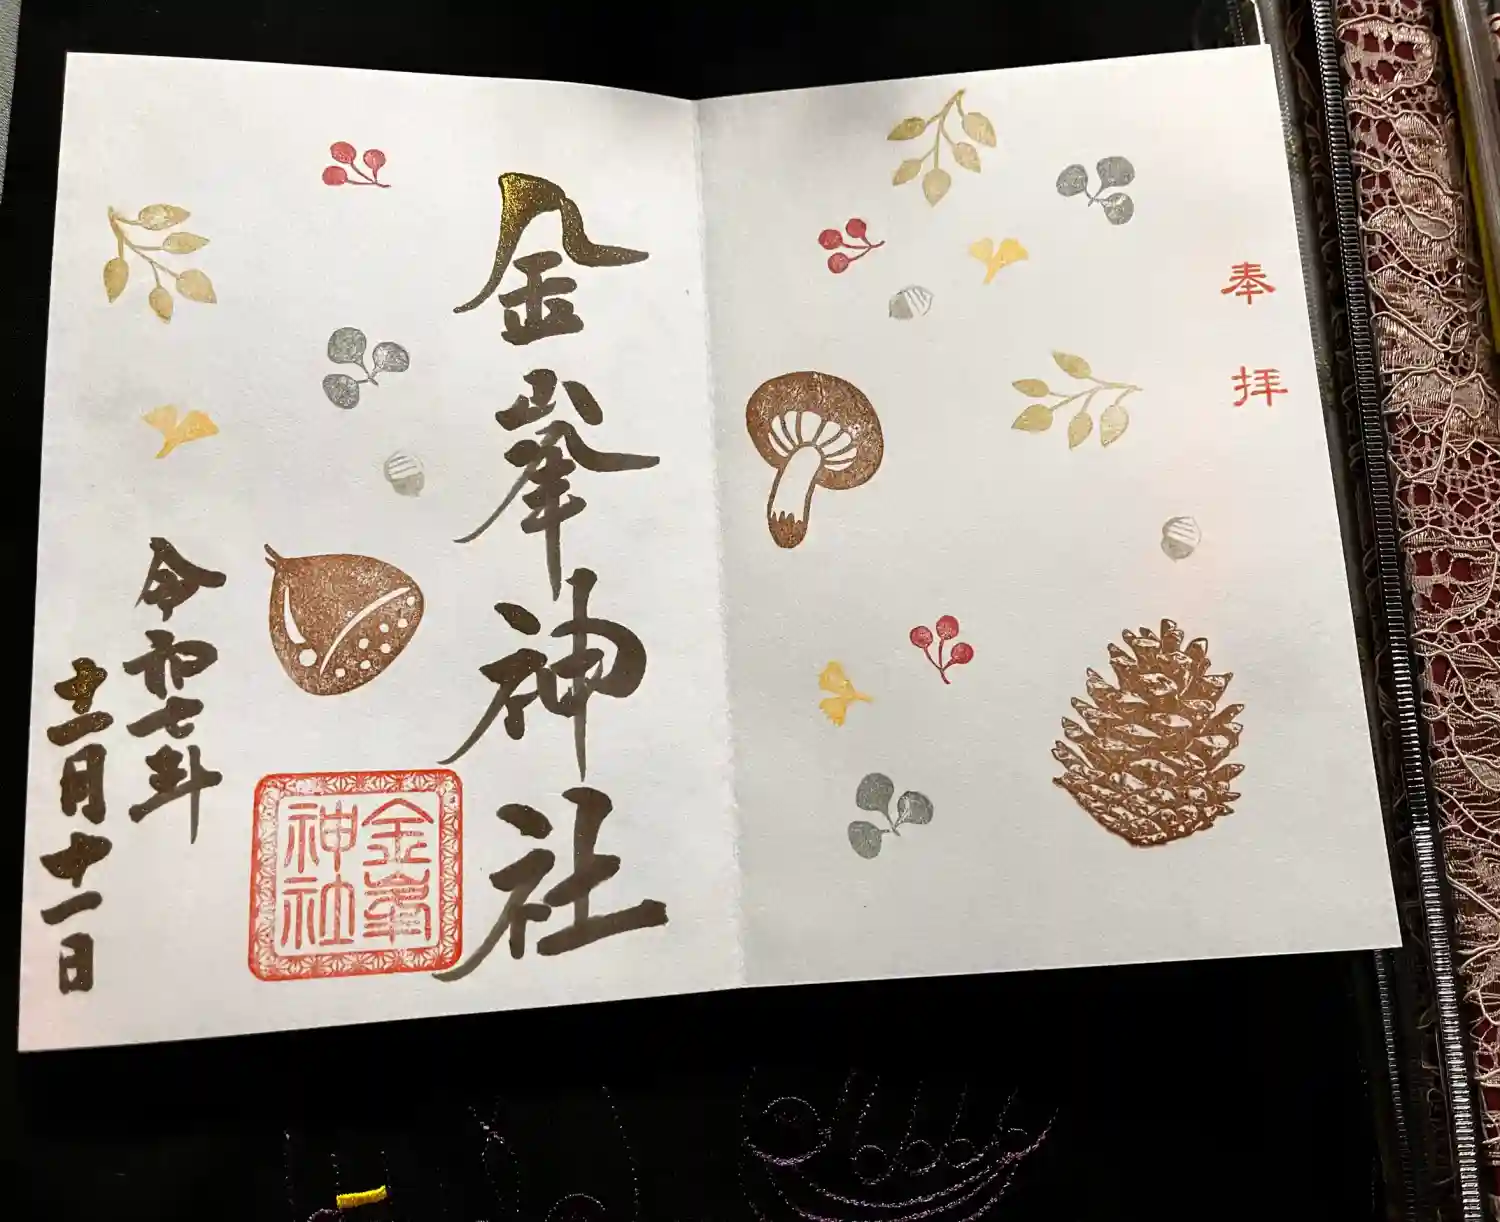 奉拝
金峯神社
金峯
神社
令和七年
十一月十一日